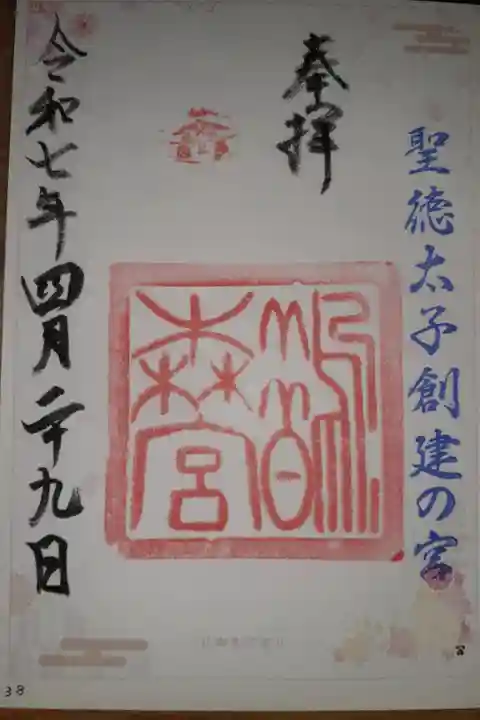 聖徳太子創建の宮
奉拝
鵲
森宮
令和七年四月二十九日
38